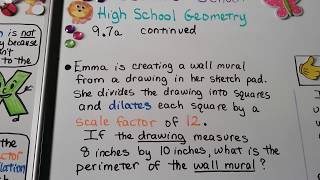 School
High School Geometry
9.7a continued
is not
by because
n't
to the
Emma is creating a wall mural
from a drawing in her sketch pad.
She divides the drawing into squares
and dilates each square by a
scale factor of 12.
If the drawing measures
8 inches by 10 inches, what is the
perimeter of the wall mural?
X
the
factor
lation